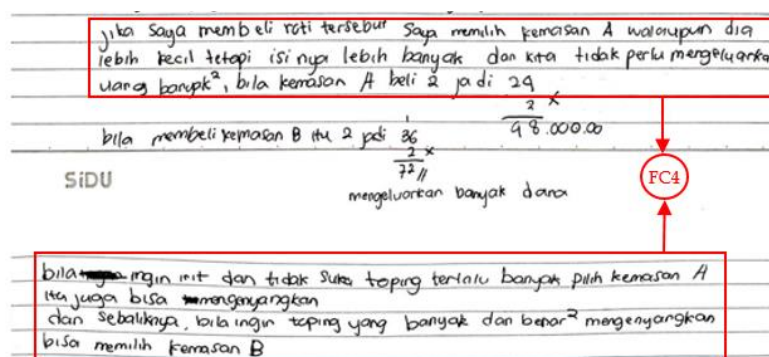 jika saya membeli roti tersebut saya memilih kemasan A walaupun dia
lebih kecil tetapi isi nya lebih banyak dan kita tidak perlu mengeluarka
uang banyak², bila kemasan A beli 2 jadi 24
2 x
48.000.00
bila membeli kemasan B itu 2 jadi 36
2 x
72 //
SiDU
mengeluarkan banyak dana
FC4
bila ingin irit dan tidak suka toping terlalu banyak pilih kemasan A
itu juga bisa mengenyangkan
dan sebaliknya, bila ingin toping yang banyak dan benar² mengenyangkan
bisa memilih kemasan B